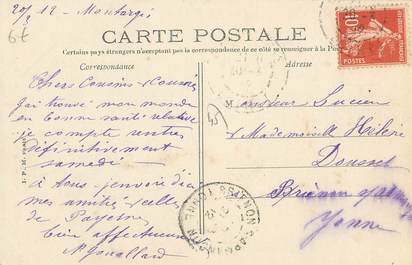 20/3 12 - Montargis
6€
CARTE POSTALE
Certains pays étrangers n'acceptent pas la correspondance de ce côté se renseigner à la Po
Correspondance
Adresse
Chers Cousins & Cousine
J'ai trouvé mon monde
en bonne santé relative
je compte rentrer
définitivement
samedi
à tous j'envoie
mes amitiés celles
de
bien affectueux
45
Monsieur Lucien
& Mademoiselle Hélène
Dousset
Brienon
Yonne
10